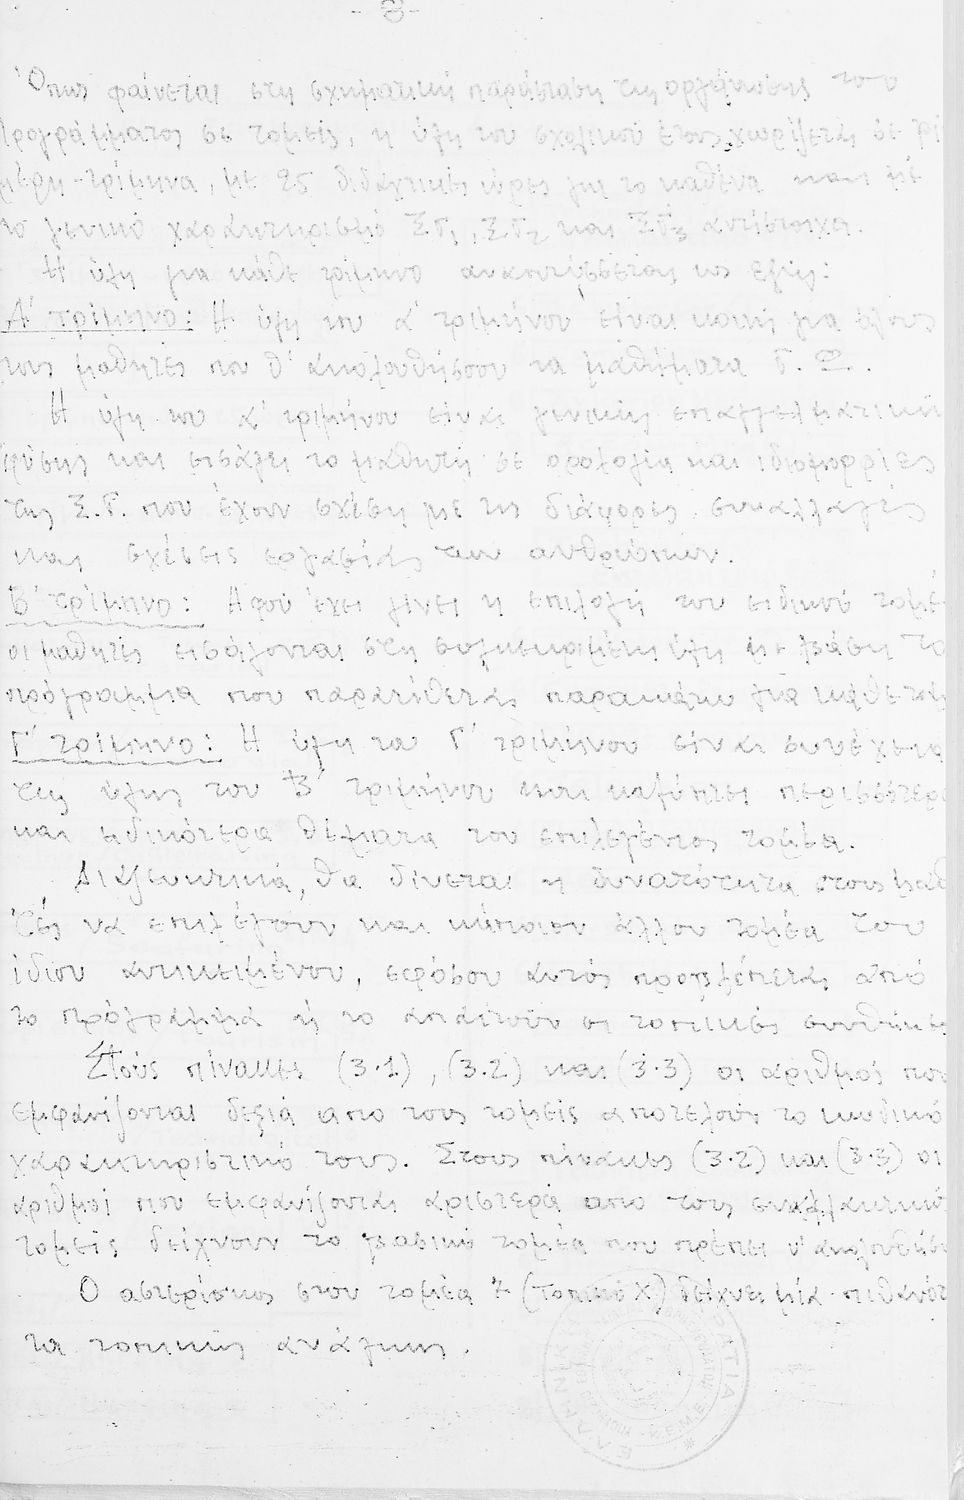 - 8 -
Όπως φαίνεται στη σχηματική παράσταση της οργάνωσης του
Προγράμματος σε τομείς, η ύλη του σχολικού έτους χωρίζεται σε τρί
μέρη-τρίμηνα, με 25 διδακτικές ώρες για το καθένα και με
το γενικό χαρακτηρισμό ΣΓ1, ΣΓ2 και ΣΓ3 αντίστοιχα.
Η ύλη για κάθε τρίμηνο αναπτύσσεται ως εξής:
Α' τρίμηνο: Η ύλη του α' τριμήνου είναι κοινή για όλους
τους μαθητές που θ' ακολουθήσουν τα μαθήματα Γ. Φ.
Η ύλη του α' τριμήνου είναι γενικής επαγγελματική
φύσης και εισάγει το μαθητή σε ορολογία και ιδιομορφίες
της Σ.Γ. που έχουν σχέση με τις διάφορες συναλλαγές
και σχέσεις εργασίας των ανθρώπων.
Β' τρίμηνο: Αφού έχει γίνει η επιλογή του ειδικού τομέ
οι μαθητές εισάγονται στη συγκεκριμένη ύλη με βάση το
πρόγραμμα που παρατίθεται παρακάτω για κάθε τομ
Γ' τρίμηνο: Η ύλη του Γ' τριμήνου είναι συνέχεια
της ύλης του Β' τριμήνου και καλύπτει περισσότερο
και ειδικότερα θέματα του επιλεγέντος τομέα.
Διαζευκτικά, θα δίνεται η δυνατότητα στους μαθ
τές να επιλέγουν και κάποιον άλλον τομέα του
ίδιου αντικειμένου, εφόσον αυτός προβλέπεται από
το πρόγραμμα ή το απαιτούν οι τοπικές συνθήκες
Στους πίνακες (3.1), (3.2) και (3.3) οι αριθμοί που
εμφανίζονται δεξιά απο τους τομείς αποτελούν το κωδικό
χαρακτηριστικό τους. Στους πίνακες (3.2) και (3.3) οι
αριθμοί που εμφανίζονται αριστερά απο τους εναλλακτικού
τομείς δείχνουν το βασικό τομέα που πρέπει ν' ακολουθήσ
Ο αστερίσκος στον τομέα 7 (Τοπικό Χ) δείχνει μία πιθανότ
τα τοπικής ανάγκης.